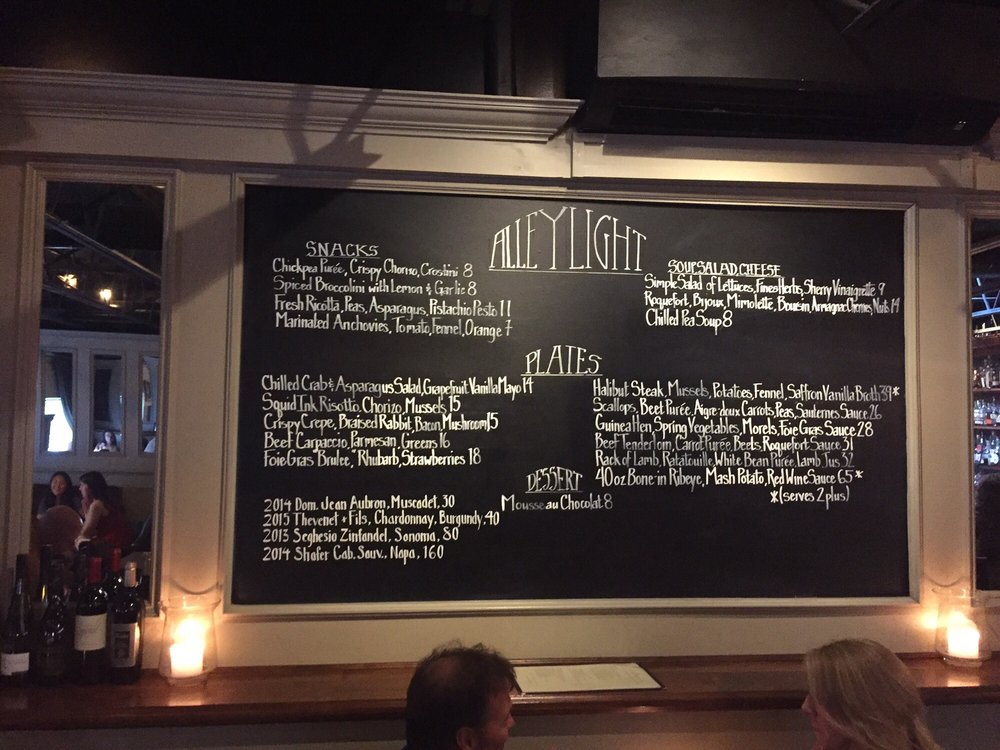 ALLEY LIGHT
SNACKS
Chickpea Purée, Crispy Chorizo, Crostini 8
Spiced Broccolini with Lemon & Garlic 8
Fresh Ricotta, Peas, Asparagus, Pistachio Pesto 11
Marinated Anchovies, Tomato, Fennel, Orange 7
SOUP, SALAD, CHEESE
Simple Salad of Lettuces, Fines Herbs, Sherry Vinaigrette 9
Roquefort, Bijoux, Mimolette, Boursin, Armagnac Cherries, Nuts 14
Chilled Pea Soup 8
PLATES
Chilled Crab & Asparagus Salad, Grapefruit Vanilla Mayo 14
Squid Ink Risotto, Chorizo, Mussels 15
Crispy Crepe, Braised Rabbit, Bacon, Mushroom 15
Beef Carpaccio, Parmesan, Greens 16
Foie Gras "Brulee," Rhubarb, Strawberries 18
Halibut Steak, Mussels, Potatoes, Fennel, Saffron Vanilla Broth 39*
Scallops, Beet Purée, Aigre-doux Carrots, Peas, Sauternes Sauce 26
Guinea Hen, Spring Vegetables, Morels, Foie Gras Sauce 28
Beef Tenderloin, Carrot Purée, Beets, Roquefort Sauce 31
Rack of Lamb, Ratatouille, White Bean Purée, Lamb Jus 32
40 oz Bone-in Ribeye, Mash Potato, Red Wine Sauce 65*
*(serves 2 plus)
DESSERT
Mousse au Chocolat 8
2014 Dom. Jean Aubron, Muscadet, 30
2015 Thevenet + Fils, Chardonnay, Burgundy, 40
2013 Seghesio Zinfandel, Sonoma, 80
2014 Shafer Cab. Sauv., Napa, 160